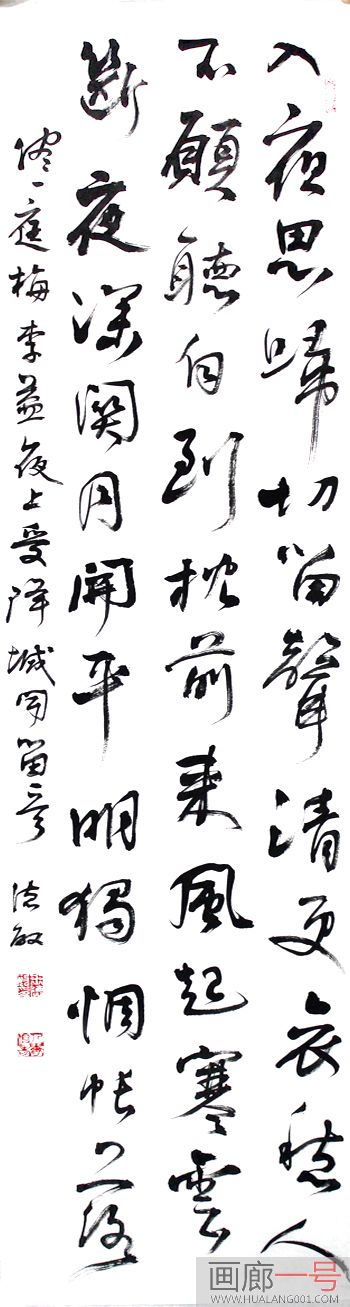 入夜思歸切笛聲清更哀愁人
不願聽自到枕前来風起塞雲
斷夜深関月開平明獨惆悵落
儘一庭梅 李益夜上受降城闻笛 敏
画廊一号
WWW.HUALANG001.COM